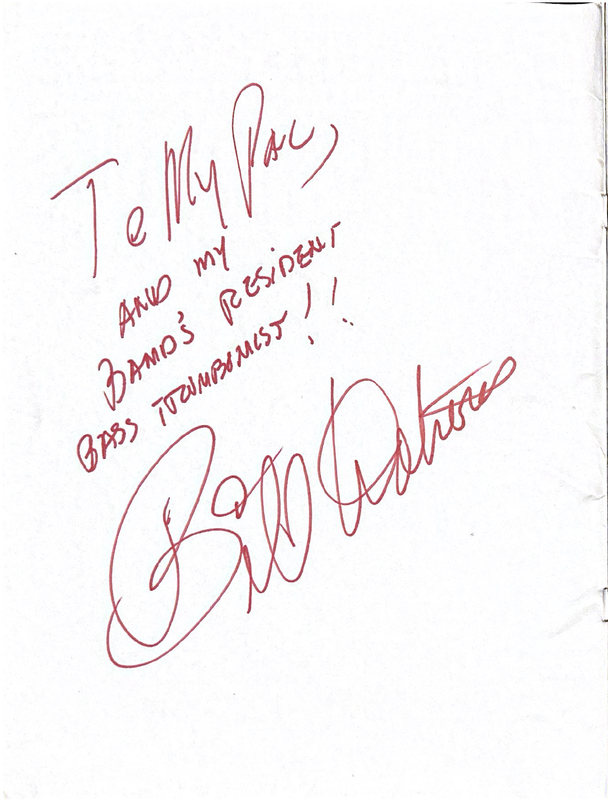 To My Pal,
AND MY
BAND'S RESIDENT
BASS TROMBONIST!!
Bill Watrous